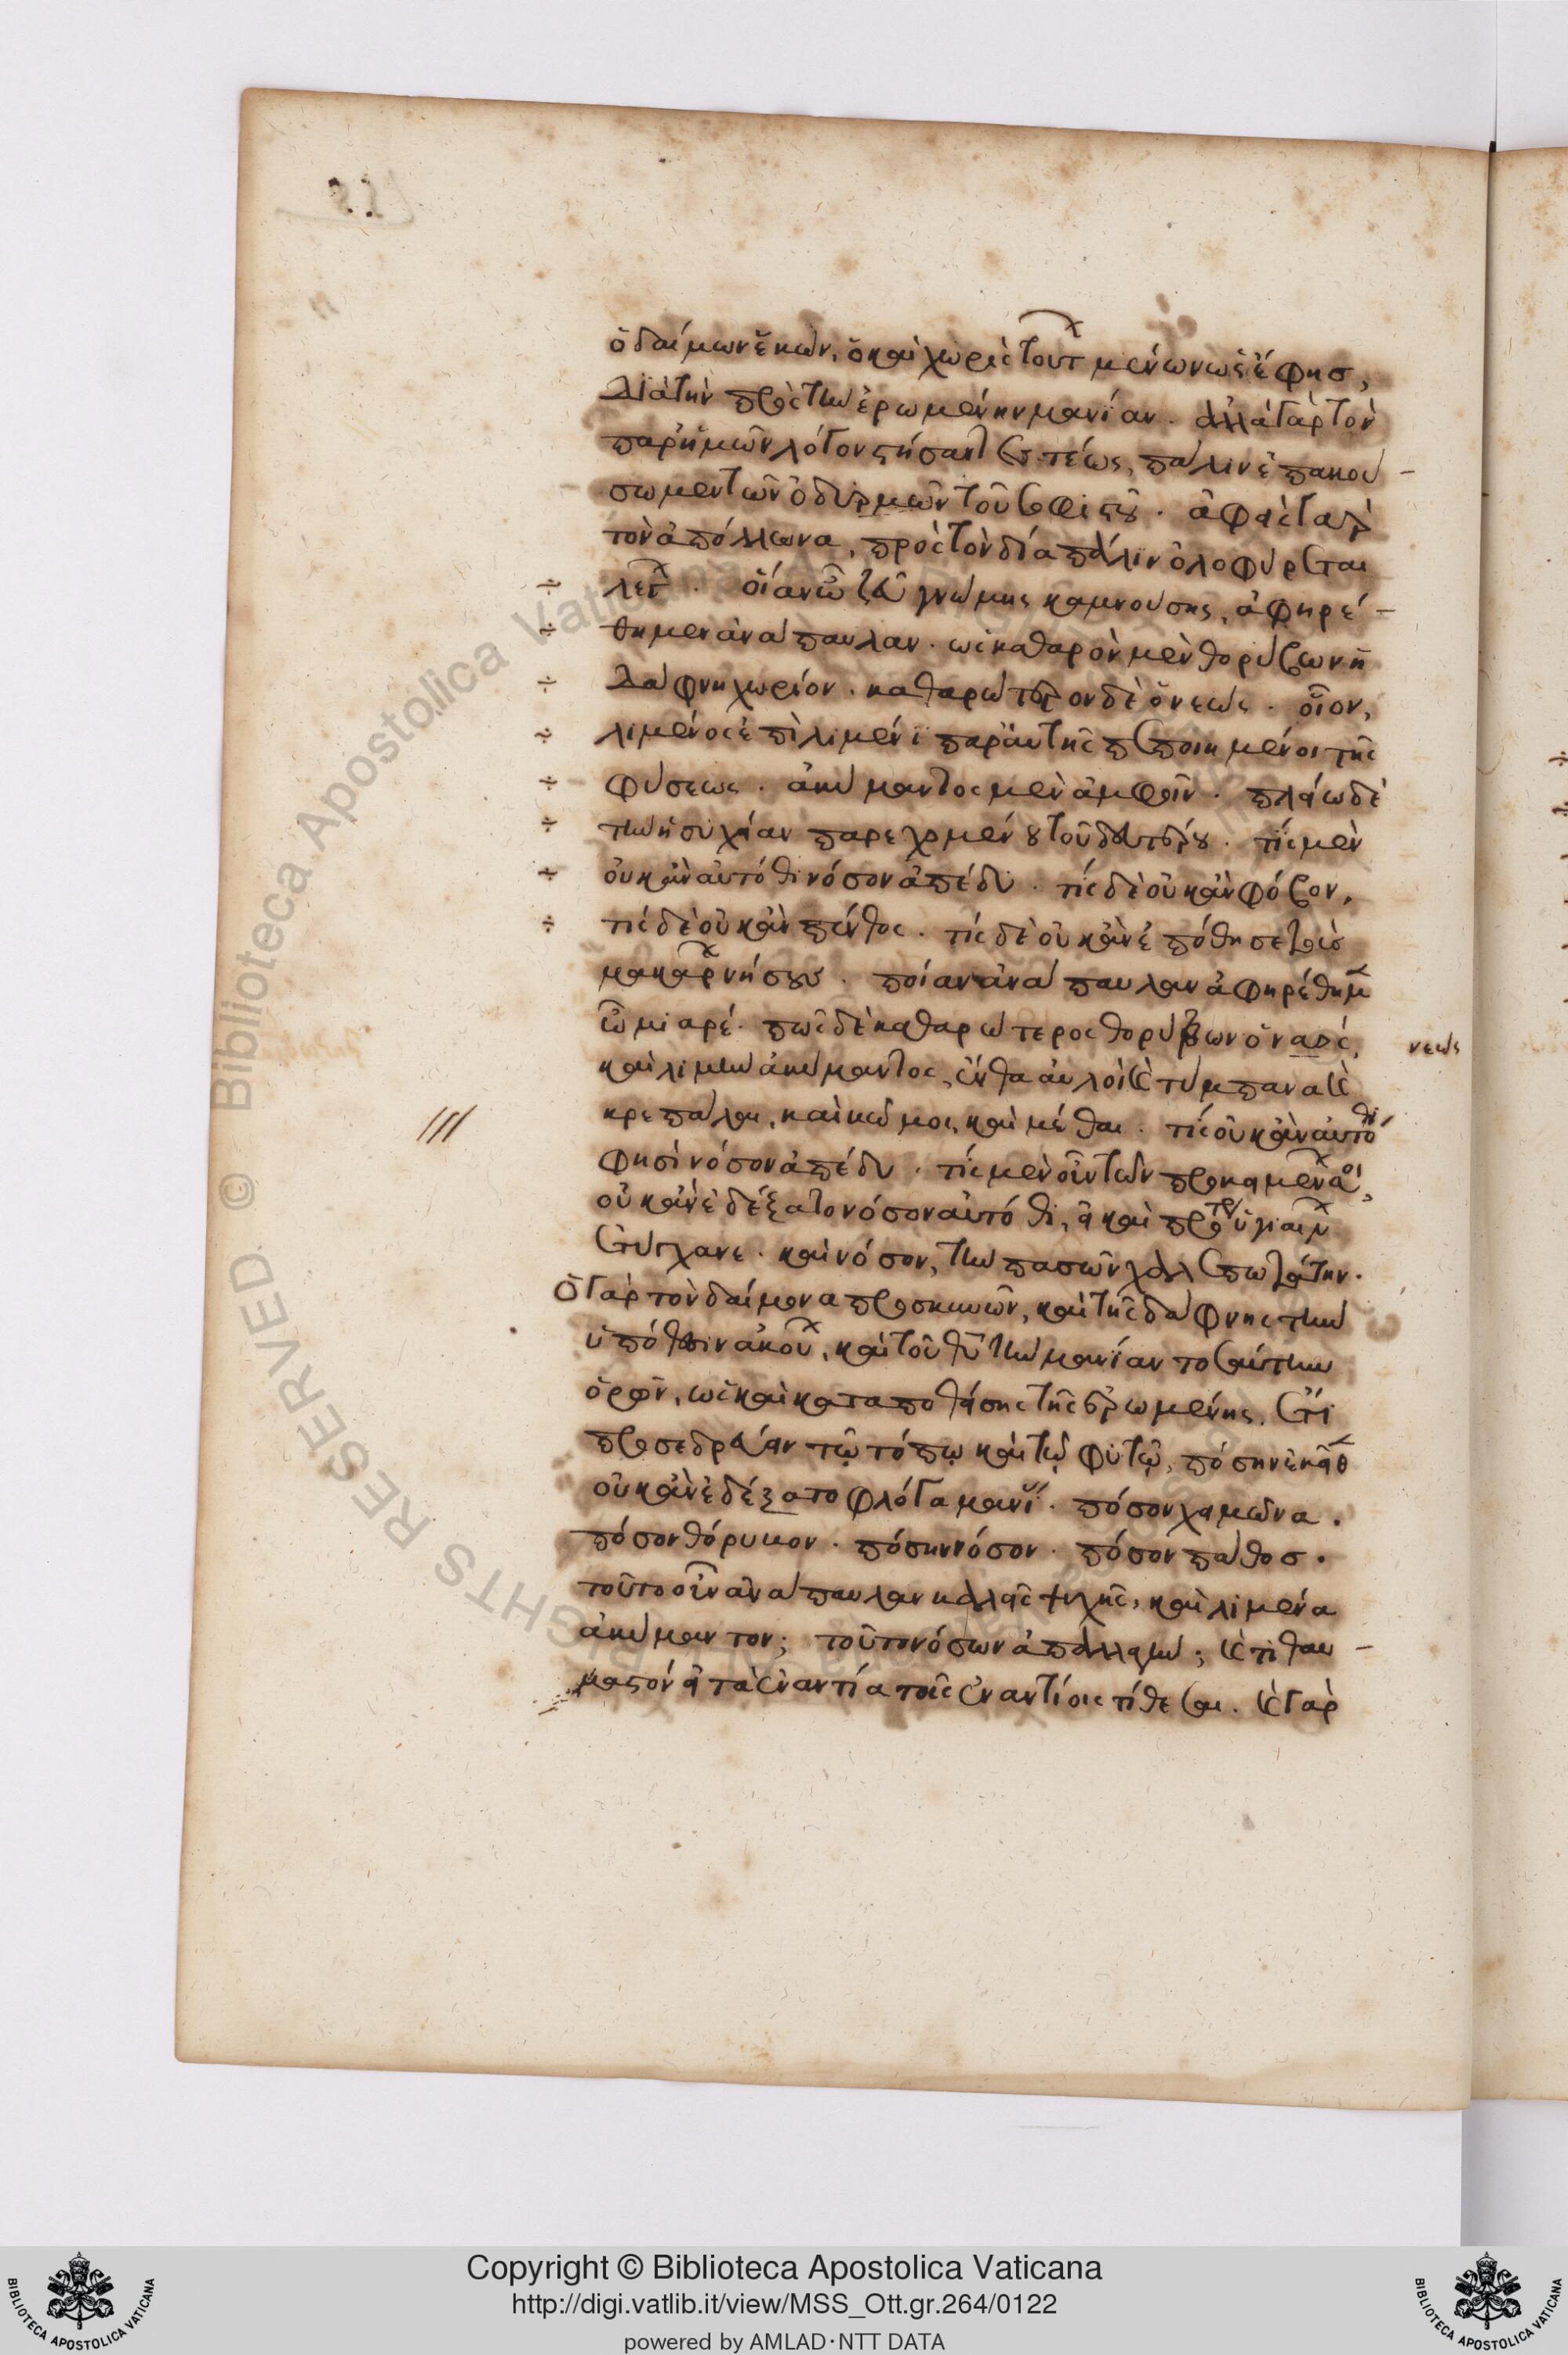 ὁ δαίμων ἑκὼν, ὁ καὶ χωρὶς τούτ μένων ὡς ἔφησ,
διὰ τὴν πρὸς τὴν ἐρωμένην μανίαν. ἀλλὰ γὰρ τὸν
παρ' ἡμῶν λόγον στήσαντες τέως, πάλιν ἐπακού-
σωμεν τῶν ὀδυρμῶν τοῦ σοφιστοῦ. ἀφεὶς γὰρ
τὸν ἀπόλλωνα, πρὸς τὸν δία πάλιν ὀλοφύρεται
λέγ. οἵαν ὦ ζεῦ γνώμης καμνούσης, ἀφηρέ-
θημεν ἀνάπαυλαν. ὡς καθαρὸν μὲν θορύβων ἡ
δάφνη χωρίον. καθαρώτερον δὲ ὁ νεώς. οἷον,
λιμένος ἐπὶ λιμένι παρ' αὐτῆς πεποιημένοι τῆς
φύσεως. ἀκυμάντος μὲν ἀμφοῖν. πλείω δὲ
τὴν ἡσυχίαν παρεχομένου τοῦ δευτέρου. τίς μὲν
οὐκ ἂν αὐτόθι νόσον ἀπέδυ. τίς δὲ οὐκ ἂν φόβον,
τίς δὲ οὐκ ἂν πένθος. τίς δὲ οὐκ ἂν ἐπόθησε τὰς
μακάρ νήσους. ποίαν ἀνάπαυλαν ἀφηρέθημ
ὦ μιαρέ. πῶς δὲ καθαρώτερος θορύβων ὁ ναὸς, νεώς
καὶ λιμὴν ἀκύμαντος, ἔνθα αὐλοὶ καὶ τύμπανα καὶ
κρεπάλαι, καὶ κώμοι, καὶ μέθαι. τίς οὐκ ἂν αὐτόθι
φησὶ νόσον ἀπέδυ. τίς μὲν οὖν τῶν
οὐκ ἂν ἐδέξατο νόσον αὐτόθι, εἰ καὶ πρότερ ὑγιαίν
ἐτύγχανε. καὶ νόσον, τὴν πασῶν χαλεπωτάτην.
ὁ γὰρ τὸν δαίμονα προσκυνῶν, καὶ τῆς δάφνης τὴν
ὑπόθεσιν ἀκού, καὶ τοῦ θεοῦ τὴν μανίαν τοσαύτην
ὁρῶν, ὡς καὶ καταποθείσης τῆς ἐρωμένης, ἔτι
προσεδρεύειν τῷ τόπῳ καὶ τῷ φυτῷ, πόσην ἐκεῖθ
οὐκ ἂν ἐδέξατο φλόγα μανί. πόσον χειμῶνα.
πόσον θόρυκον. πόσην νόσον. πόσον πάθοσ.
τοῦτο οὖν ἀνάπαυλαν καλεῖς ψυχῆς, καὶ λιμένα
ἀκύμαντον; τοῦτο νόσων ἀπαλλαγὴν; καὶ τί θαυ-
μαστὸν εἰ τὰ ἐναντία τοῖς ἐναντίοις τίθεσαι. καὶ γὰρ
Copyright © Biblioteca Apostolica Vaticana
http://digi.vatlib.it/view/MSS_Ott.gr.264/0122
powered by AMLAD·NTT DATA